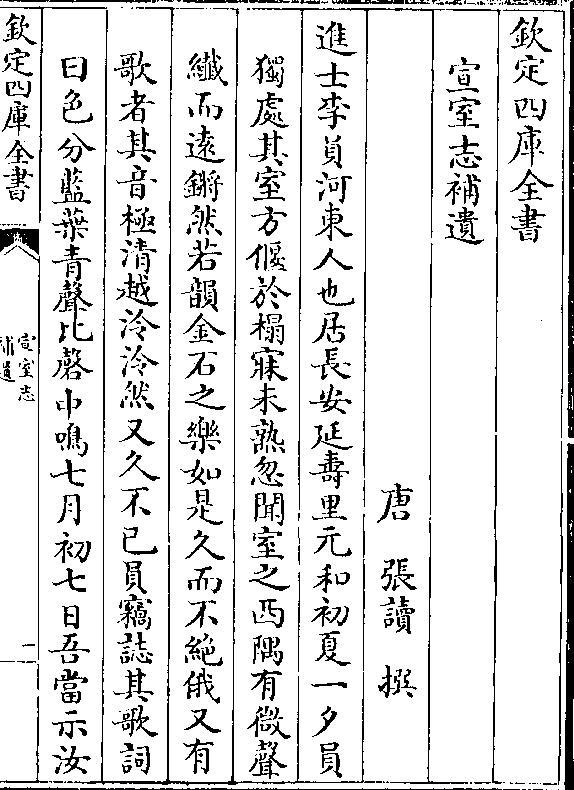 欽定四庫全書
宣室志補遺
唐 張讀 撰
進士李員河東人也居長安延壽里元和初夏一夕員
獨處其室方偃於榻寐未熟忽聞室之西隅有微聲
纖而遠鏘然若韻金石之樂如是久而不絶俄又有
歌者其音極清越泠泠然又久不已員竊誌其歌詞
曰色分藍葉青聲比磬中鳴七月初七日吾當示汝
欽定四庫全書
宣室志
補遺
一